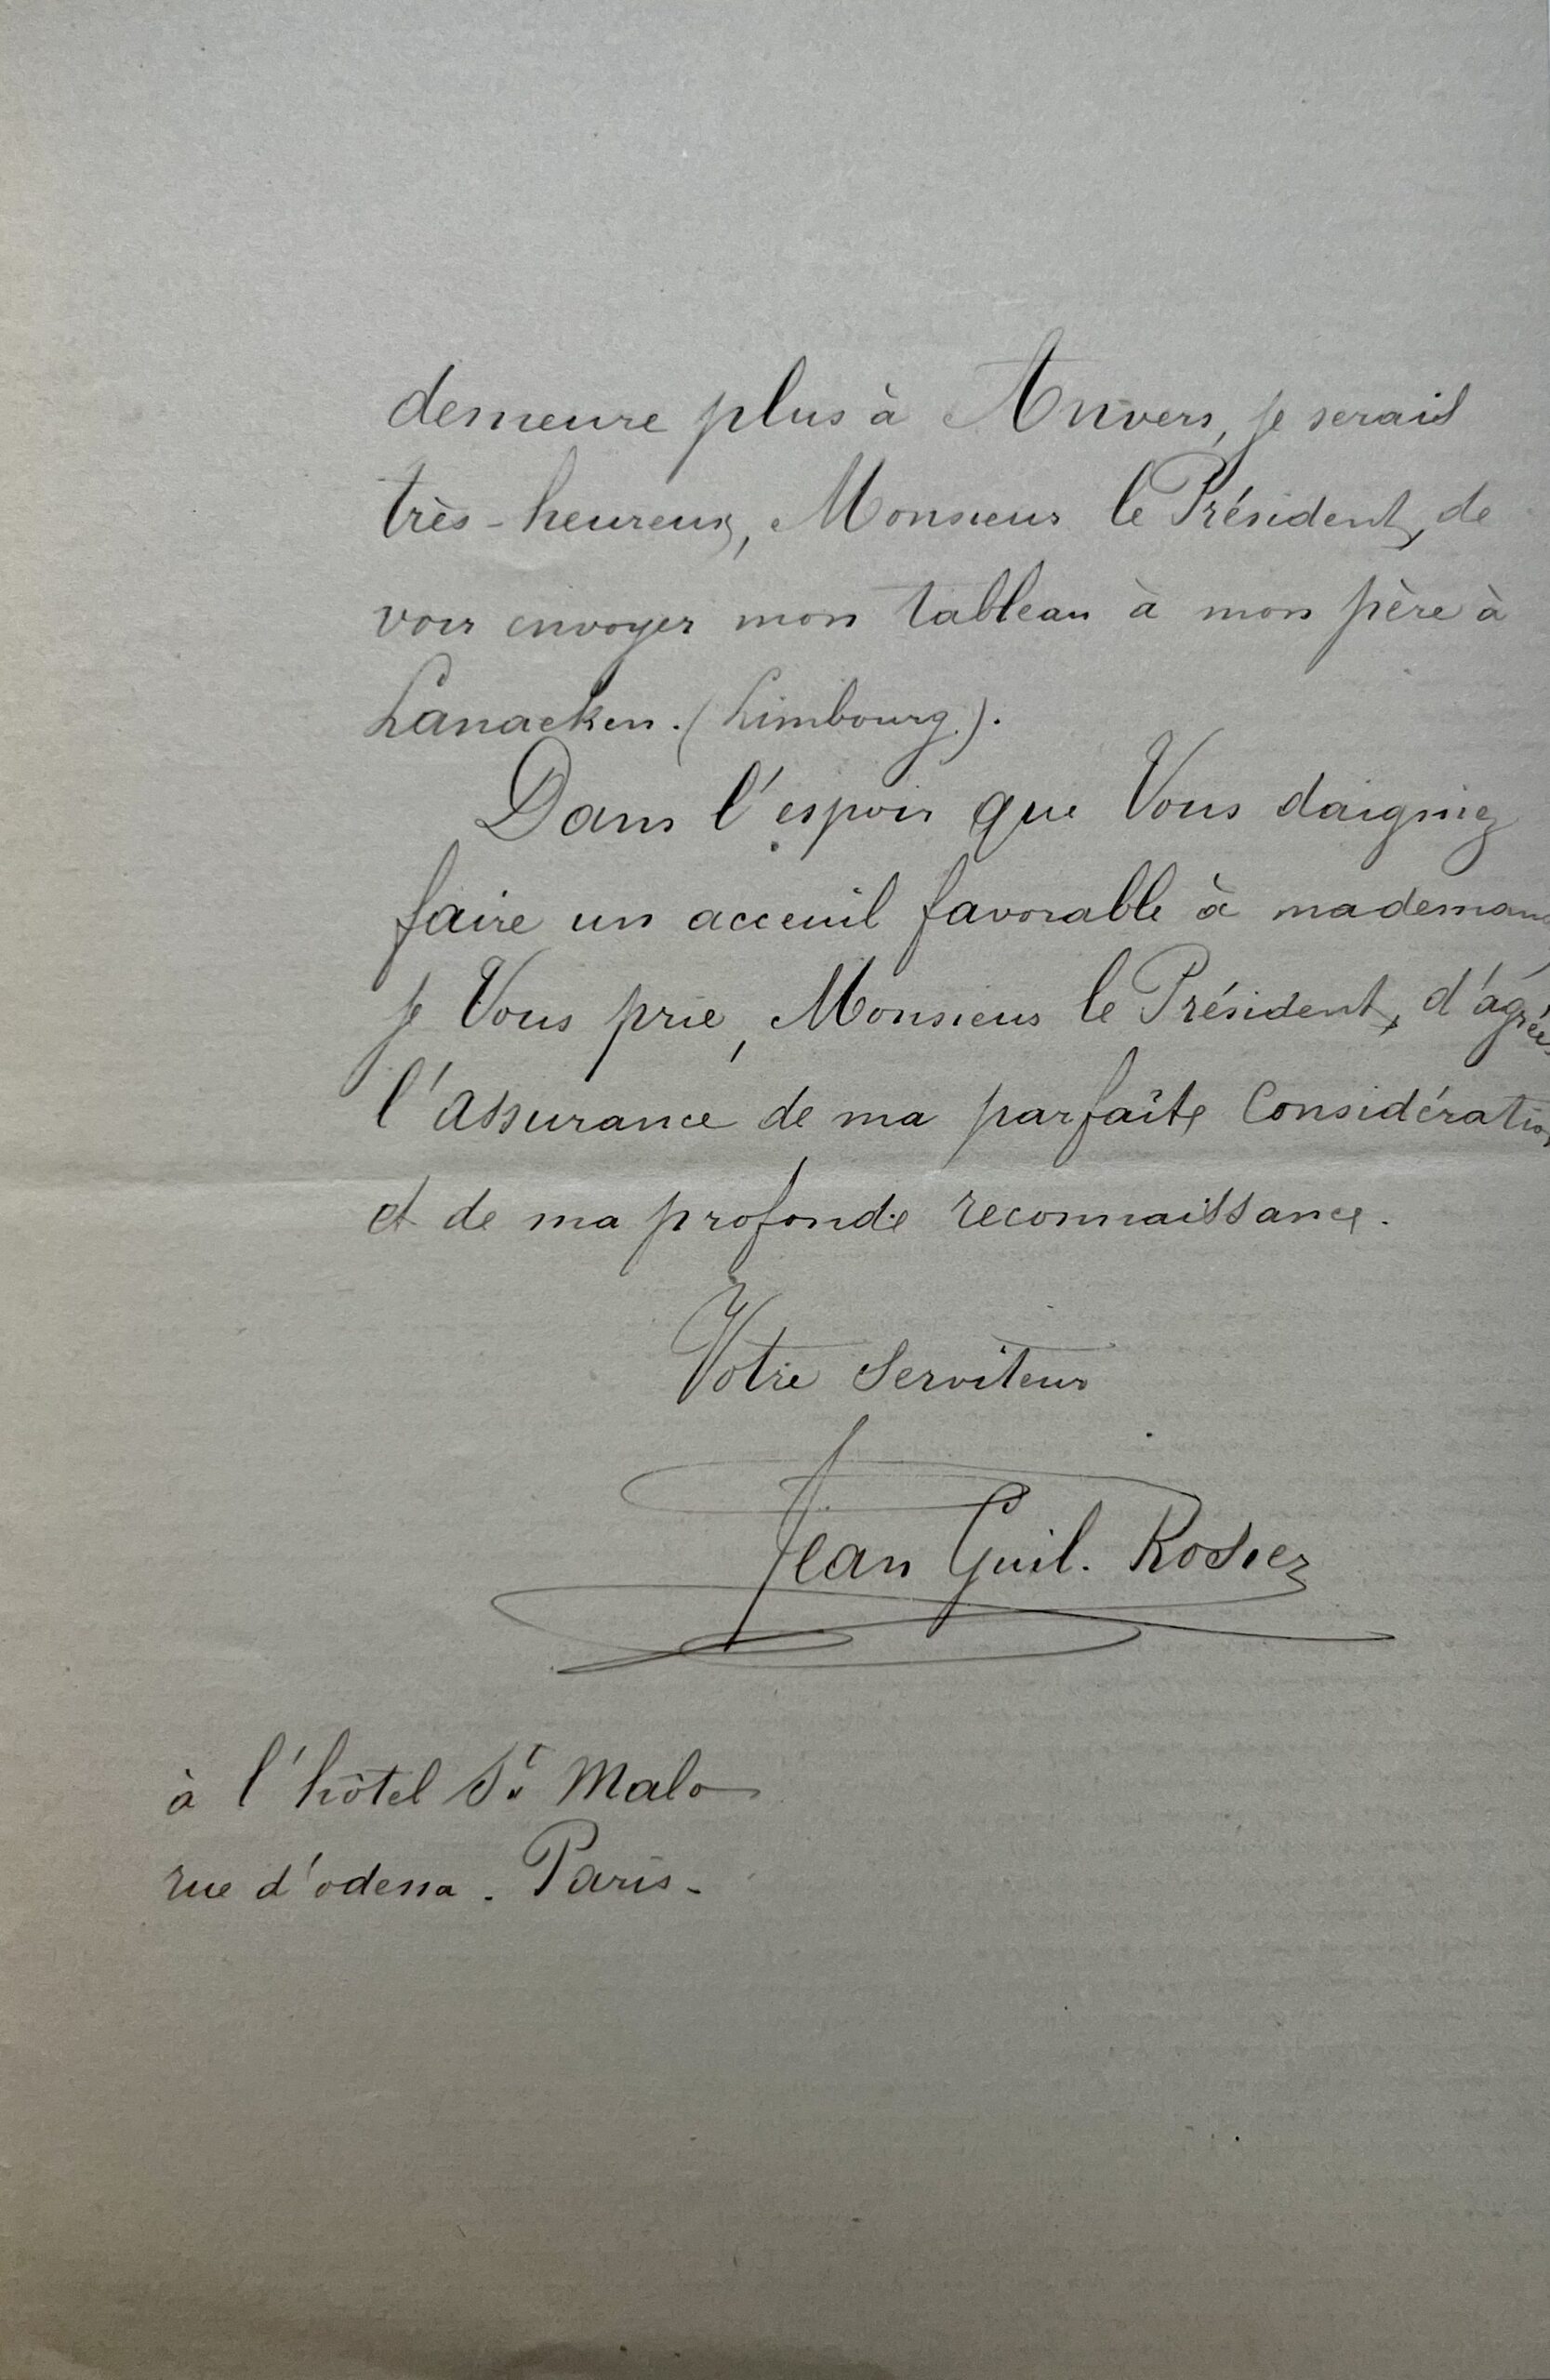 demeure plus à Anvers, je serais
très-heureux, Monsieur le Président, de
voir envoyer mon tableau à mon père à
Lanaeken. (Limbourg.).
Dans l'espoir que Vous daigniez
faire un acceuil favorable à ma deman
je Vous prie, Monsieur le Président, d'agréer
l'assurance de ma parfaite Considération
et de ma profonde reconnaissance.
Votre Serviteur
Jean Guil. Rosier
à l'hôtel St Malo
rue d'odessa. Paris.